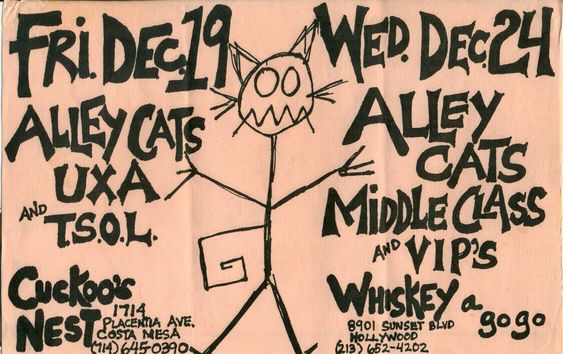 FRI. DEC. 19
ALLEY CATS
UXA
AND
T.S.O.L.
CUCKOO'S
NEST
1714
PLACENTIA AVE.
COSTA MESA
(714) 645-0390
WED. DEC. 24
ALLEY
CATS
MIDDLE CLASS
AND VIP'S
WHISKEY a gogo
8901 SUNSET BLVD
HOLLYWOOD
(213) 652-4202